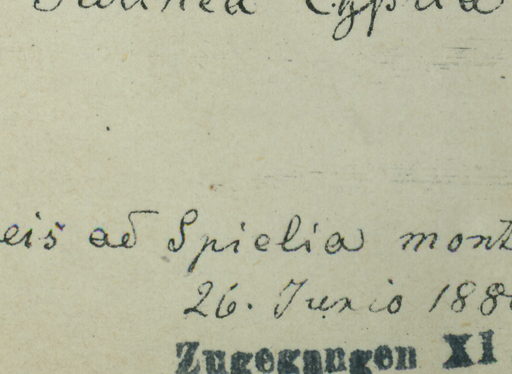 Cypria
eis ad Spielia mont
26. Junio 188
Zugegangen XI